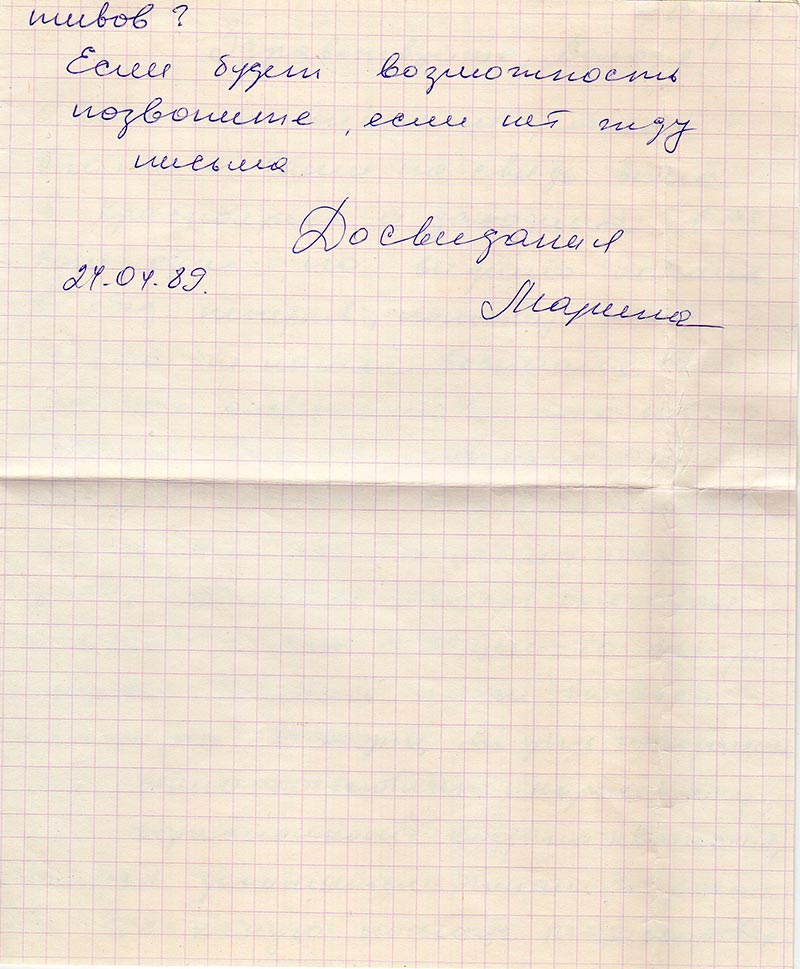 тивов?
Если будет возможность
позвоните, если нет жду
письма
Досвидания
24.04.89.
Марина